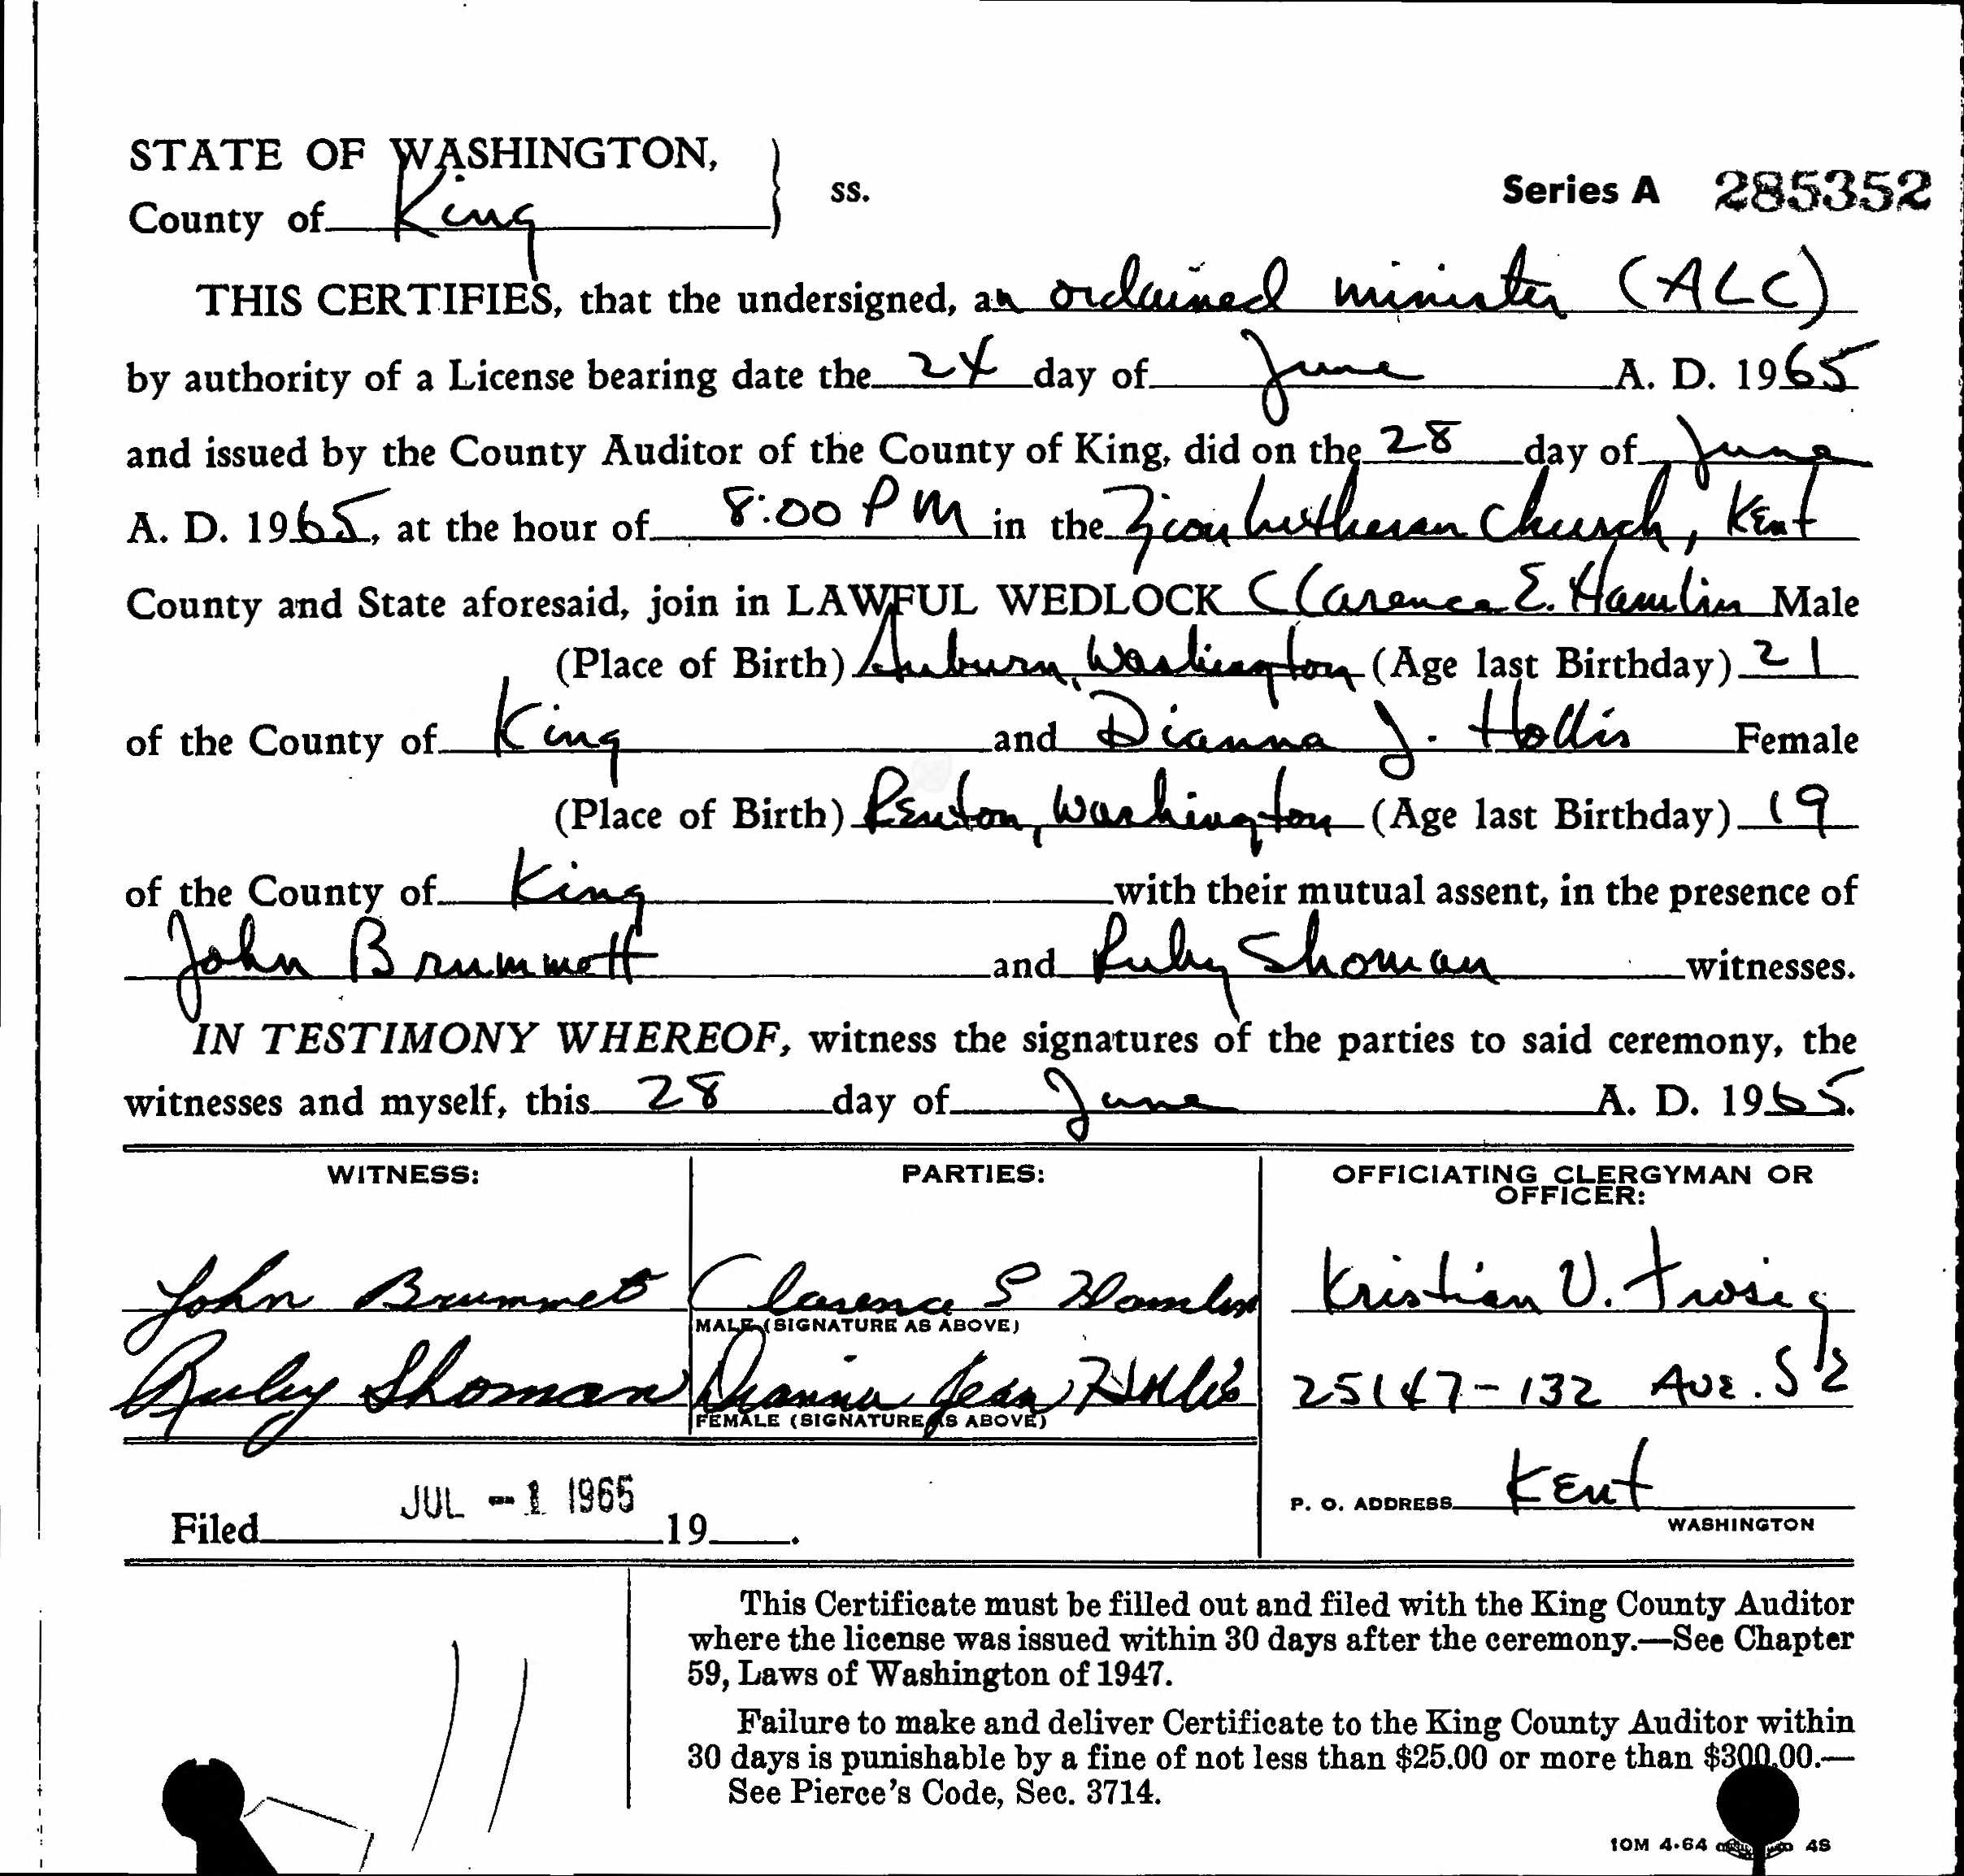 STATE OF WASHINGTON,
County of King
ss.
Series A 285352
THIS CERTIFIES, that the undersigned, an ordained minister (ALC)
by authority of a License bearing date the 24 day of June A. D. 1965
and issued by the County Auditor of the County of King, did on the 28 day of June
A. D. 1965, at the hour of 8:00 PM in the Zion Lutheran Church, Kent
County and State aforesaid, join in LAWFUL WEDLOCK Clarence E. Hamlin Male
(Place of Birth) Auburn, Washington (Age last Birthday) 21
of the County of King and Dianna J. Hollis Female
(Place of Birth) Renton, Washington (Age last Birthday) 19
of the County of King with their mutual assent, in the presence of
John Brummett and Ruby Shoman witnesses.
IN TESTIMONY WHEREOF, witness the signatures of the parties to said ceremony, the
witnesses and myself, this 28 day of June A. D. 1965.
WITNESS: PARTIES: OFFICIATING CLERGYMAN OR
OFFICER:
John Brummet Clarence E Hamlin Kristian V.
MALE (SIGNATURE AS ABOVE)
Ruby Shoman Dianna Jean Hollis 25147-132 Ave. SE
FEMALE (SIGNATURE AS ABOVE)
P. O. ADDRESS Kent
WASHINGTON
JUL -1 1965
Filed 19 .
This Certificate must be filled out and filed with the King County Auditor
where the license was issued within 30 days after the ceremony.—See Chapter
59, Laws of Washington of 1947.
Failure to make and deliver Certificate to the King County Auditor within
30 days is punishable by a fine of not less than $25.00 or more than $300.00.—
See Pierce's Code, Sec. 3714.
10M 4-64 48